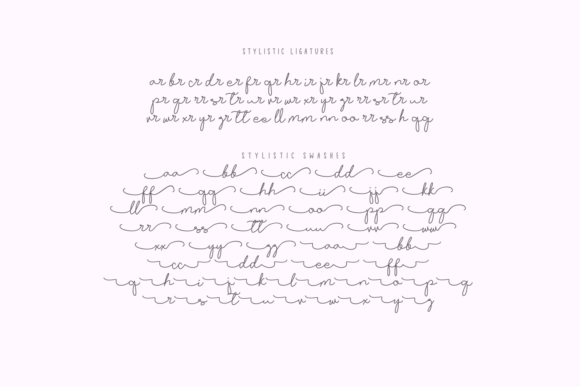 STYLISTIC LIGATURES
ar br cr dr er fr gr hr ir jr kr lr mr nr or
pr qr rr sr tr ur vr wr xr yr zr rr sr tr ur
vr wr xr yr zr tt ee ll mm nn oo rr ss h gg
STYLISTIC SWASHES
aa bb cc dd ee
ff gg hh ii jj kk
ll mm nn oo pp qq
rr ss tt uu vv ww
xx yy zz aa bb
cc dd ee ff
g h i j k l m n o p q
r s t u v w x y z